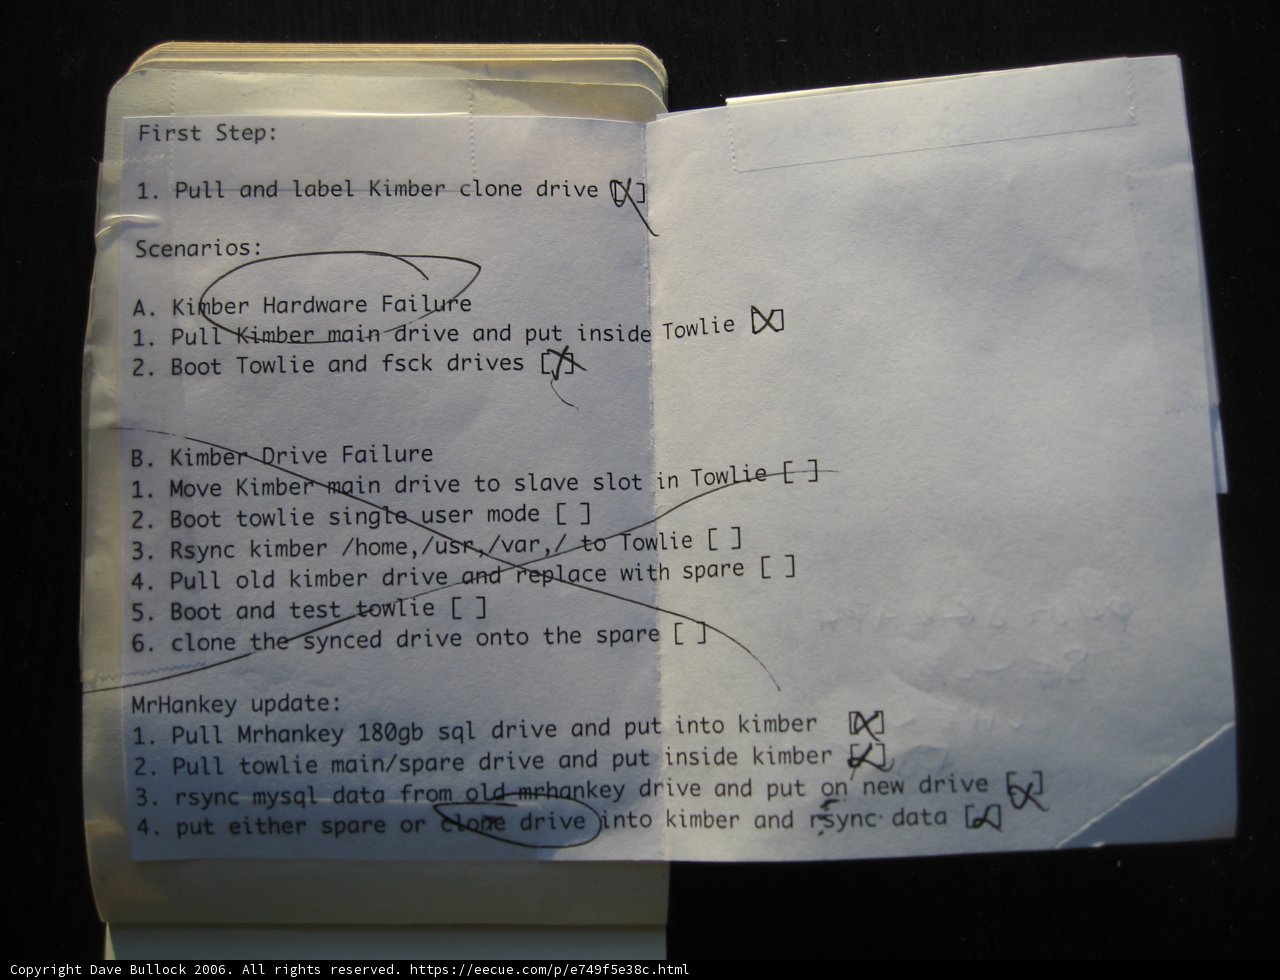 First Step:
1. Pull and label Kimber clone drive [X]
Scenarios:
A. Kimber Hardware Failure
1. Pull Kimber main drive and put inside Towlie [X]
2. Boot Towlie and fsck drives [X]
B. Kimber Drive Failure
1. Move Kimber main drive to slave slot in Towlie [ ]
2. Boot towlie single user mode [ ]
3. Rsync kimber /home,/usr,/var,/ to Towlie [ ]
4. Pull old kimber drive and replace with spare [ ]
5. Boot and test towlie [ ]
6. clone the synced drive onto the spare [ ]
MrHankey update:
1. Pull Mrhankey 180gb sql drive and put into kimber [X]
2. Pull towlie main/spare drive and put inside kimber [X]
3. rsync mysql data from old mrhankey drive and put on new drive [X]
4. put either spare or clone drive into kimber and rsync data [X]
Copyright Dave Bullock 2006. All rights reserved. https://eecue.com/p/e749f5e38c.html